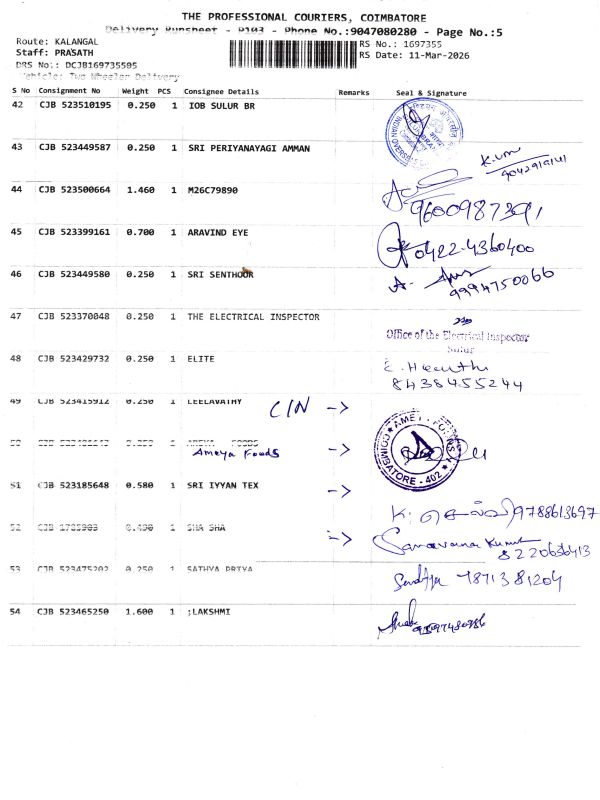 THE PROFESSIONAL COURIERS, COIMBATORE
Delivery Runsheet - P103 - Phone No.:9047080280 - Page No.:5
Route: KALANGAL
Staff: PRASATH
DRS No.: DCJB169735505
Vehicle: Two Wheeler Delivery
RS No.: 1697355
RS Date: 11-Mar-2026
S No Consignment No Weight PCS Consignee Details Remarks Seal & Signature
42 CJB 523510195 0.250 1 IOB SULUR BR
43 CJB 523449587 0.250 1 SRI PERIYANAYAGI AMMAN
44 CJB 523500664 1.460 1 M26C79890
9600987391
45 CJB 523399161 0.700 1 ARAVIND EYE
0422-4360400
46 CJB 523449580 0.250 1 SRI SENTHOOR
9994750066
47 CJB 523370048 0.250 1 THE ELECTRICAL INSPECTOR
Office of the Electrical Inspector
Sulur
48 CJB 523429732 0.250 1 ELITE
8438455244
49 CJB 523415912 0.250 1 LEELAVATHY C/N ->
50 CJB 1 AMEYA FOODS ->
Ameya Foods
COIMBATORE - 402
51 CJB 523185648 0.580 1 SRI IYYAN TEX ->
K. செல்வி 9788613697
52 CJB 1 SHA SHA ->
Saravana Kumar
8220636413
53 CJB 523475202 0.250 1 SATHYA PRIYA
Sandhya 7871381204
54 CJB 523465250 1.600 1 ;LAKSHMI